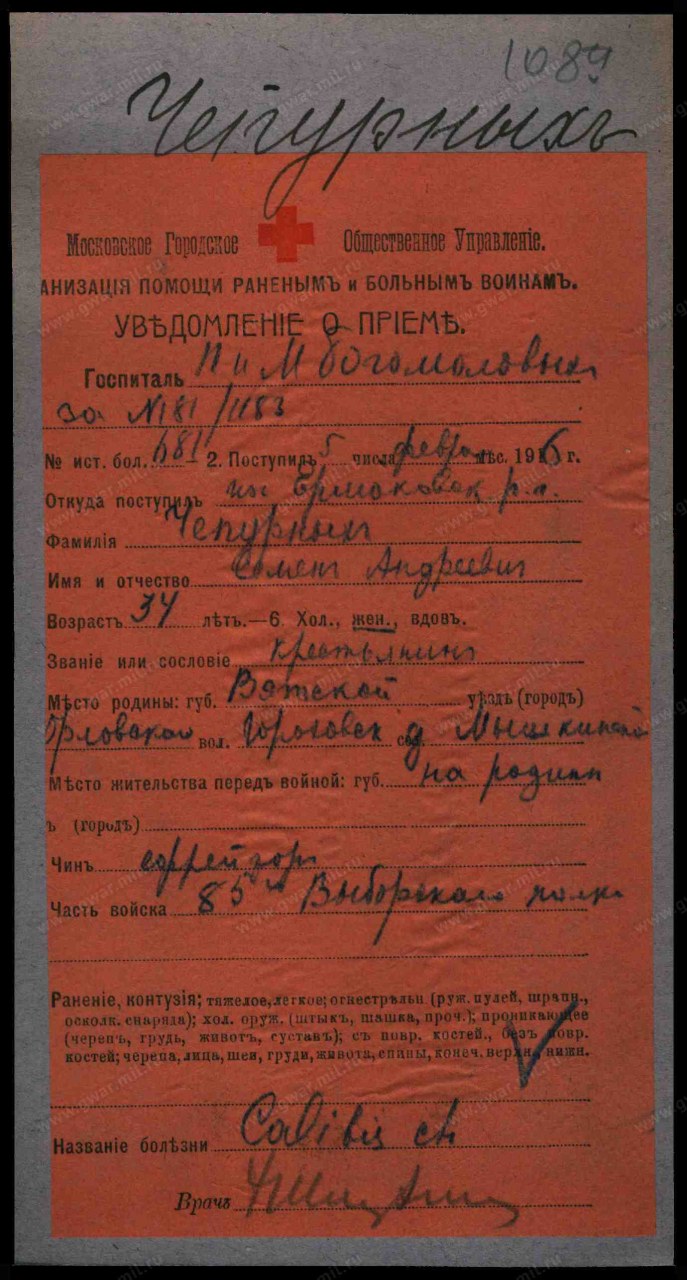 1089
Чепурныхъ
Московское Городское Общественное Управленіе.
АНИЗАЦІЯ ПОМОЩИ РАНЕНЫМЪ и БОЛЬНЫМЪ ВОИНАМЪ.
УВѢДОМЛЕНІЕ О ПРІЕМѢ.
Госпиталь П и М Богомоловыхъ
за №181/1183
№ ист. бол. 681 – 2. Поступилъ 5 числа февра мѣс. 1916 г.
Откуда поступилъ Ермаковск р.п.
Фамилія Чепурныхъ
Имя и отчество Семенъ Андреевич
Возрастъ 34 лѣтъ.—6. Хол., жен., вдовъ.
Званіе или сословіе крестьянинъ
Мѣсто родины: губ. Вятской уѣздъ (городъ)
Орловскаго вол. сел. д Мышкинской
Мѣсто жительства передъ войной: губ. на родинѣ
ъ (городъ)
Чинъ ефрейторъ
Часть войска 85й Выборгскаго полка
Раненіе, контузія; тяжелое, легкое; огнестрѣльн. (руж. пулей, шрапн.,
осколк. снаряда); хол. оруж. (штык., шашка, проч.); проникающее
(черепъ, грудь, животъ, суставъ); съ повр. костей., безъ повр.
костей; черепа, лица, шеи, груди, живота, спины, конеч. верхн., нижн.
Названіе болѣзни
Врачъ